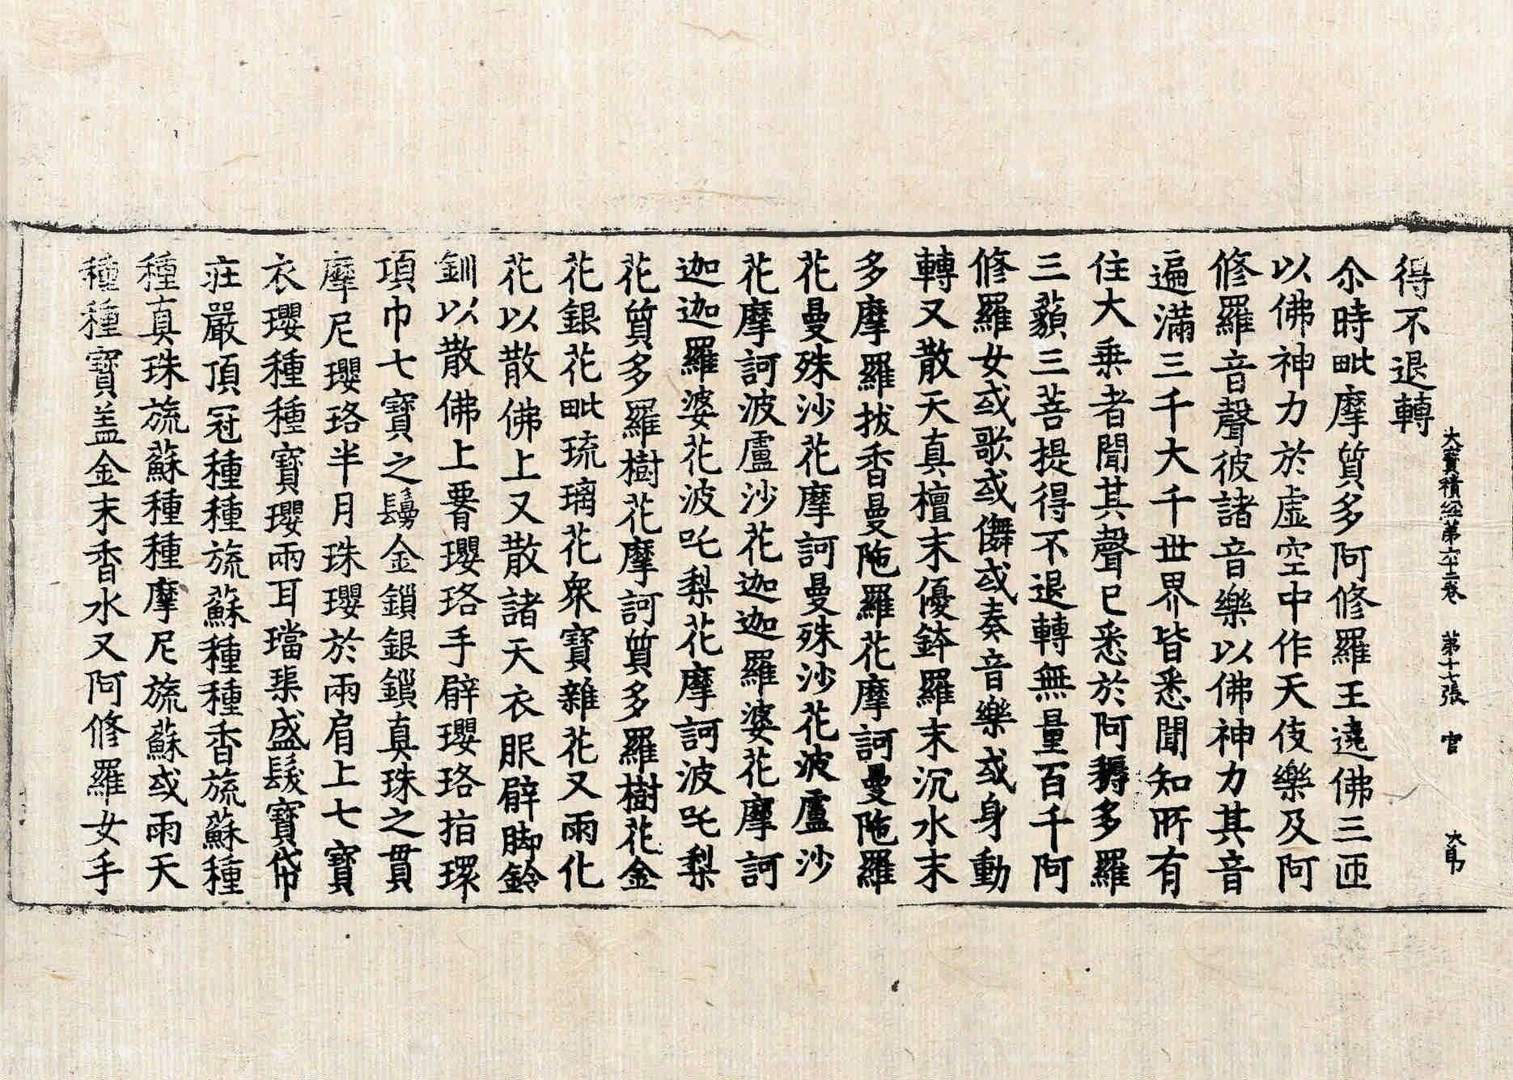 大寶積經第六十三卷　第十七張　官
得不退轉
尒時毗摩質多阿修羅王遶佛三匝
以佛神力於虛空中作天伎樂及阿
修羅音聲彼諸音樂以佛神力其音
遍滿三千大千世界皆悉聞知所有
住大乘者聞其聲已悉於阿耨多羅
三藐三菩提得不退轉無量百千阿
修羅女或歌或儛或奏音樂或身動
轉又散天真檀末優鉢羅末沉水末
多摩羅拔香曼陁羅花摩訶曼陁羅
花曼殊沙花摩訶曼殊沙花波盧沙
花摩訶波盧沙花迦迦羅婆花摩訶
迦迦羅婆花波吒梨花摩訶波吒梨
花質多羅樹花摩訶質多羅樹花金
花銀花毗琉璃花衆寶雜花又雨化
花以散佛上又散諸天衣服臂脚鈴
釧以散佛上署瓔珞手臂瓔珞指環
項巾七寶之鬘金鎖銀鎖真珠之貫
摩尼瓔珞半月珠瓔於兩肩上七寶
衣瓔種種寶瓔兩耳璫渠盛髮寶帒
莊嚴頂冠種種旒蘇種種香旒蘇種
種真珠旒蘇種種摩尼旒蘇或雨天
種種寶盖金末香水又阿修羅女手